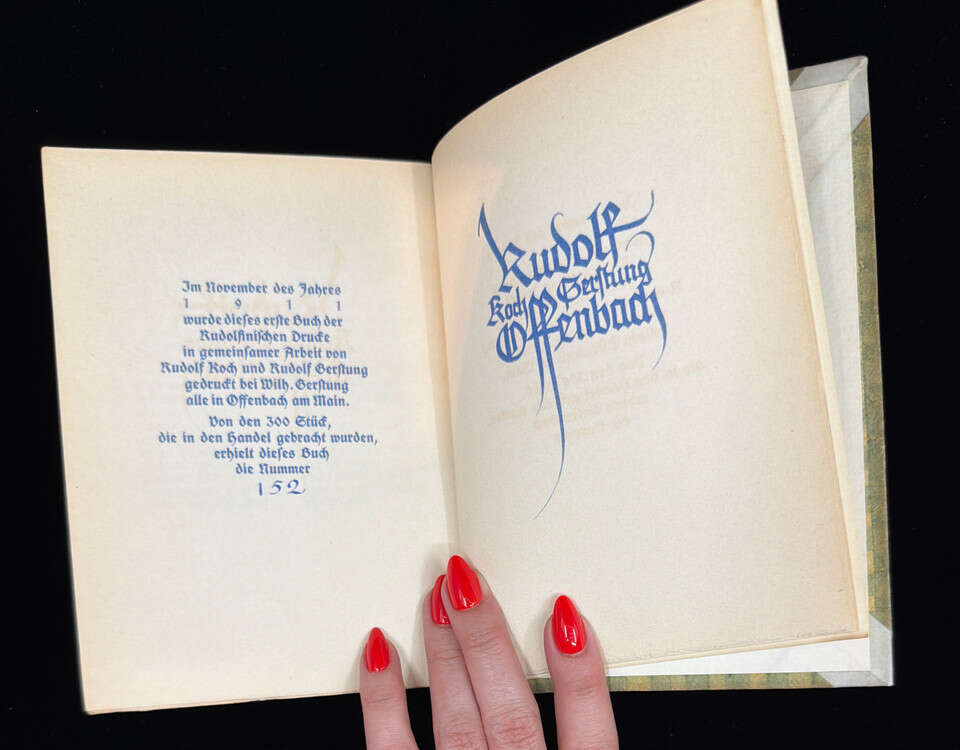 Im November des Jahres
1 9 1 1
wurde dieſes erſte Buch der
Rudolfiniſchen Drucke
in gemeinſamer Arbeit von
Rudolf Koch und Rudolf Gerſtung
gedruckt bei Wilh. Gerſtung
alle in Offenbach am Main.
Von den 300 Stück,
die in den Handel gebracht wurden,
erhielt dieſes Buch
die Nummer
152
Rudolf
Koch Gerſtung
Offenbach